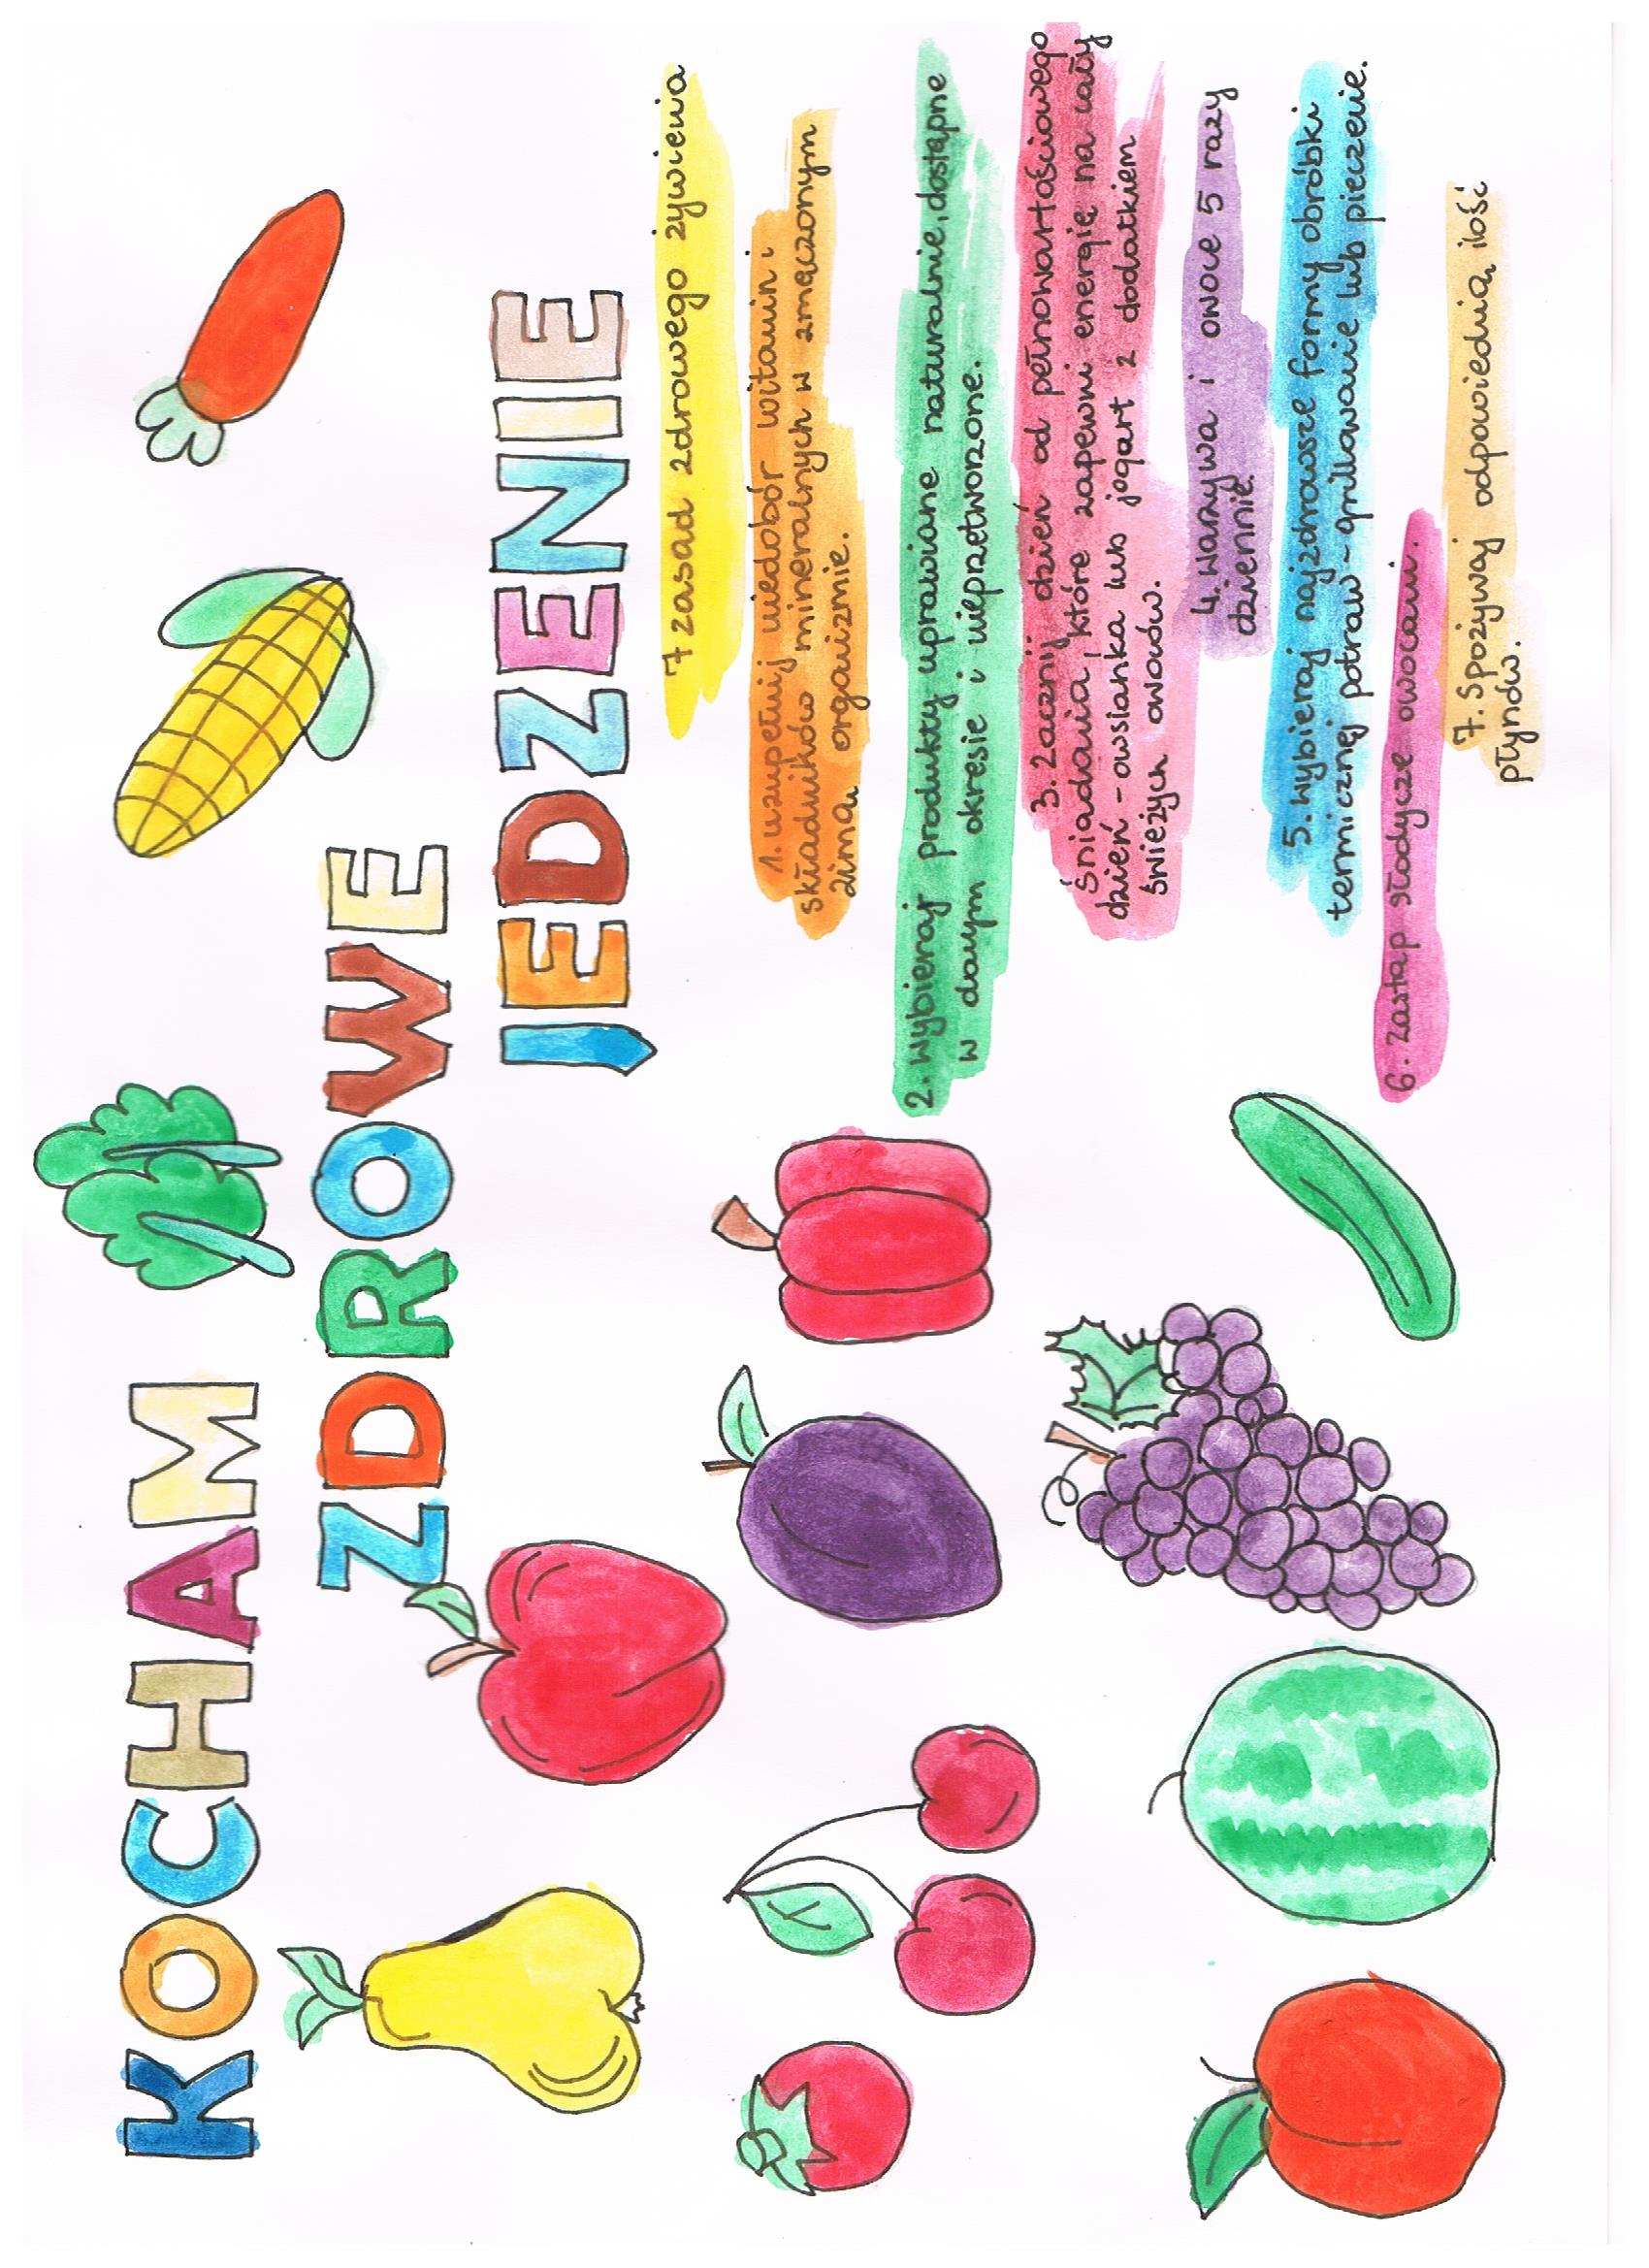 KOCHAM
ZDROWE
JEDZENIE
7 zasad zdrowego żywienia
1. uzupełnij niedobór witamin i
składników mineralnych w zmęczonym
zimą organizmie.
2. Wybieraj produkty uprawiane naturalnie, dostępne
w danym okresie i nieprzetworzone.
3. Zacznij dzień od pełnowartościowego
śniadania, które zapewni energię na cały
dzień - owsianka lub jogurt z dodatkiem
świeżych owoców.
4. Warzywa i owoce 5 razy
dziennie.
5. Wybieraj najzdrowsze formy obróbki
termicznej potraw - grillowanie lub pieczenie.
6. Zastąp słodycze owocami.
7. Spożywaj odpowiednią ilość
płynów.